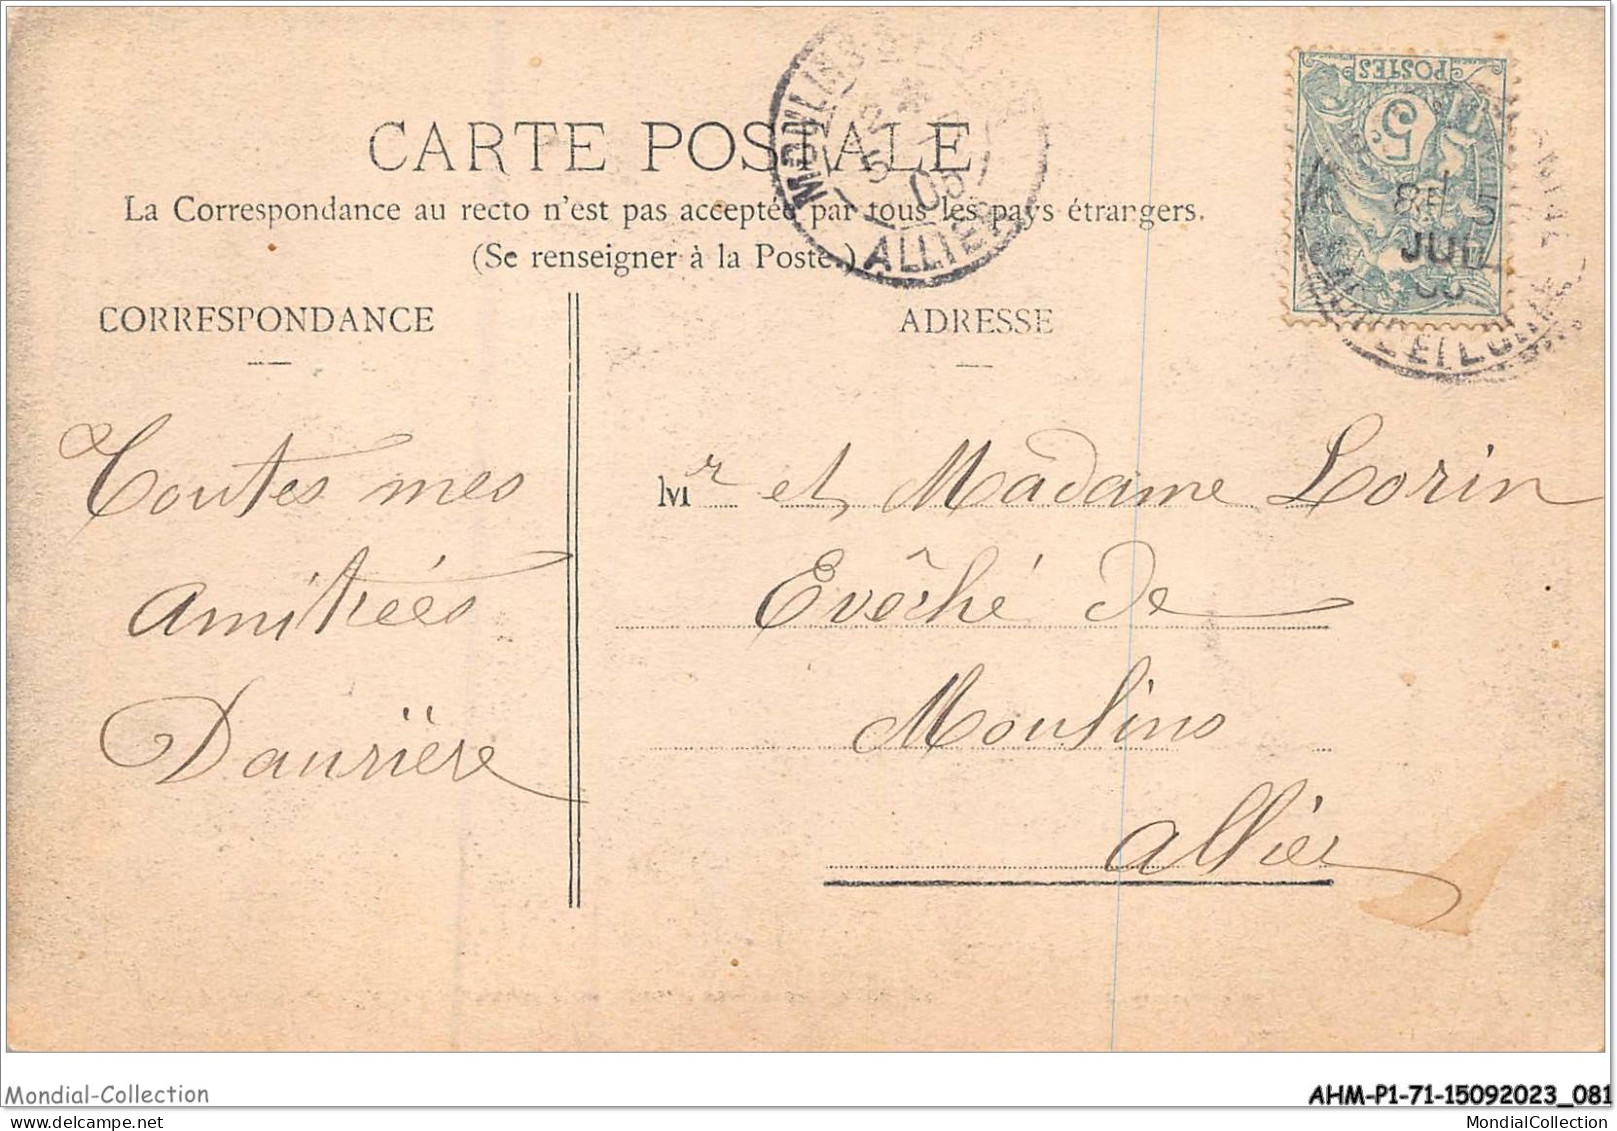 CARTE POSTALE
La Correspondance au recto n'est pas acceptée par tous les pays étrangers.
(Se renseigner à la Poste.)
MOULINS
5 05
ALLIER
POSTES
5
JUIL
ET LOIRE
CORRESPONDANCE
ADRESSE
Toutes mes
amitiées
Daurière
Mr et Madame Lorin
Evêché de
Moulins
Allier
Mondial-Collection
AHM-P1-71-15092023_081
MondialCollection